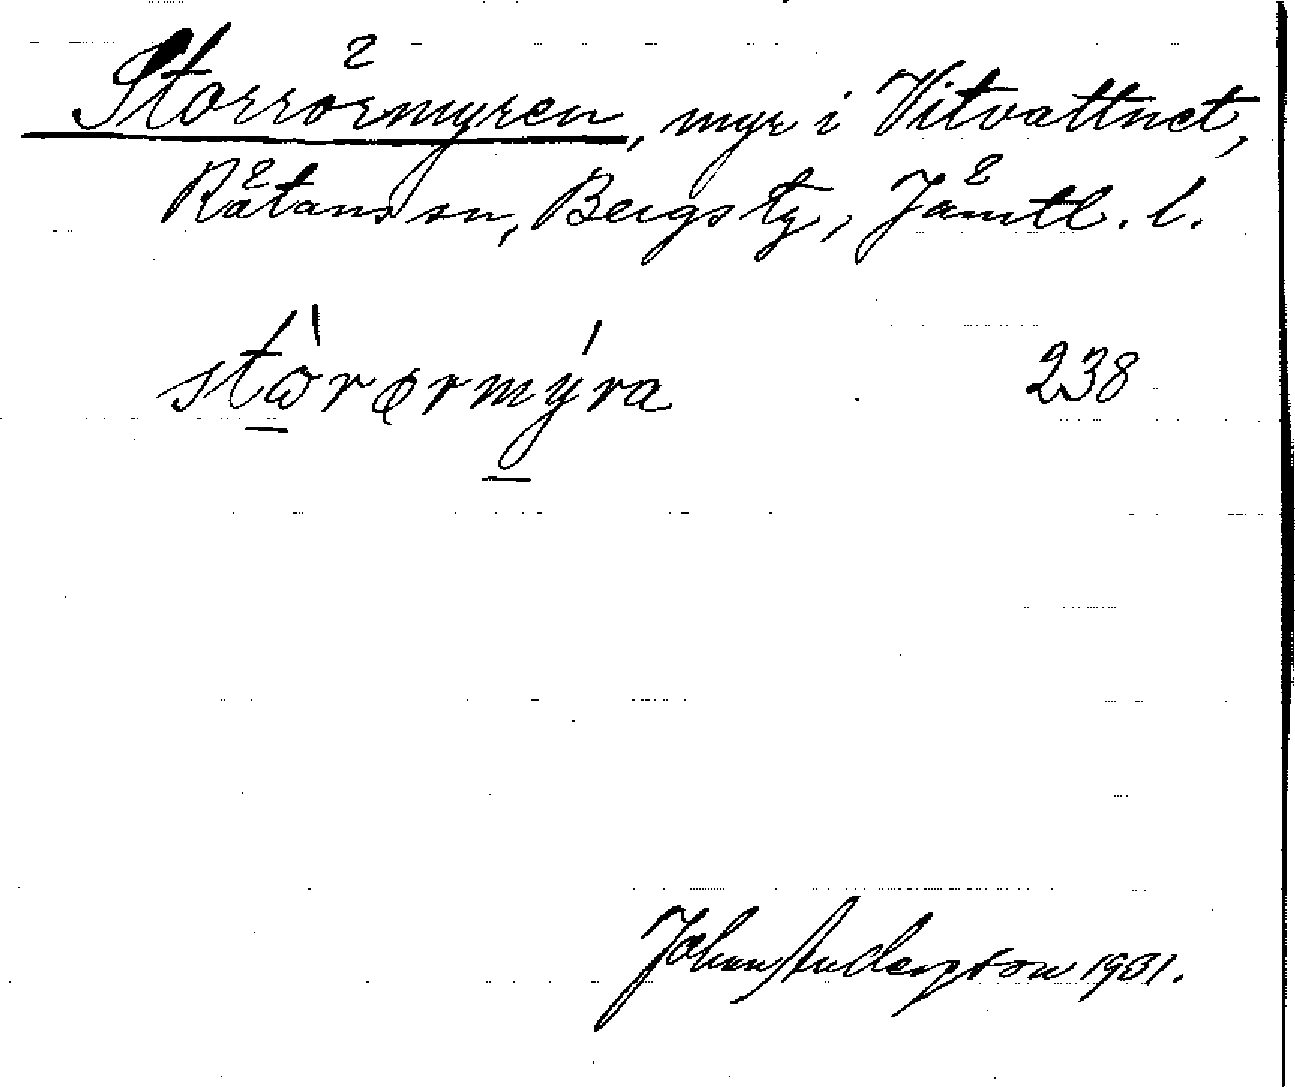 Storrörmyren, myr i Vitvattnet,
Rätans sn, Bergs tg, Jämtl. l.
stωrørmýra 238
Johan Anderson 1931.